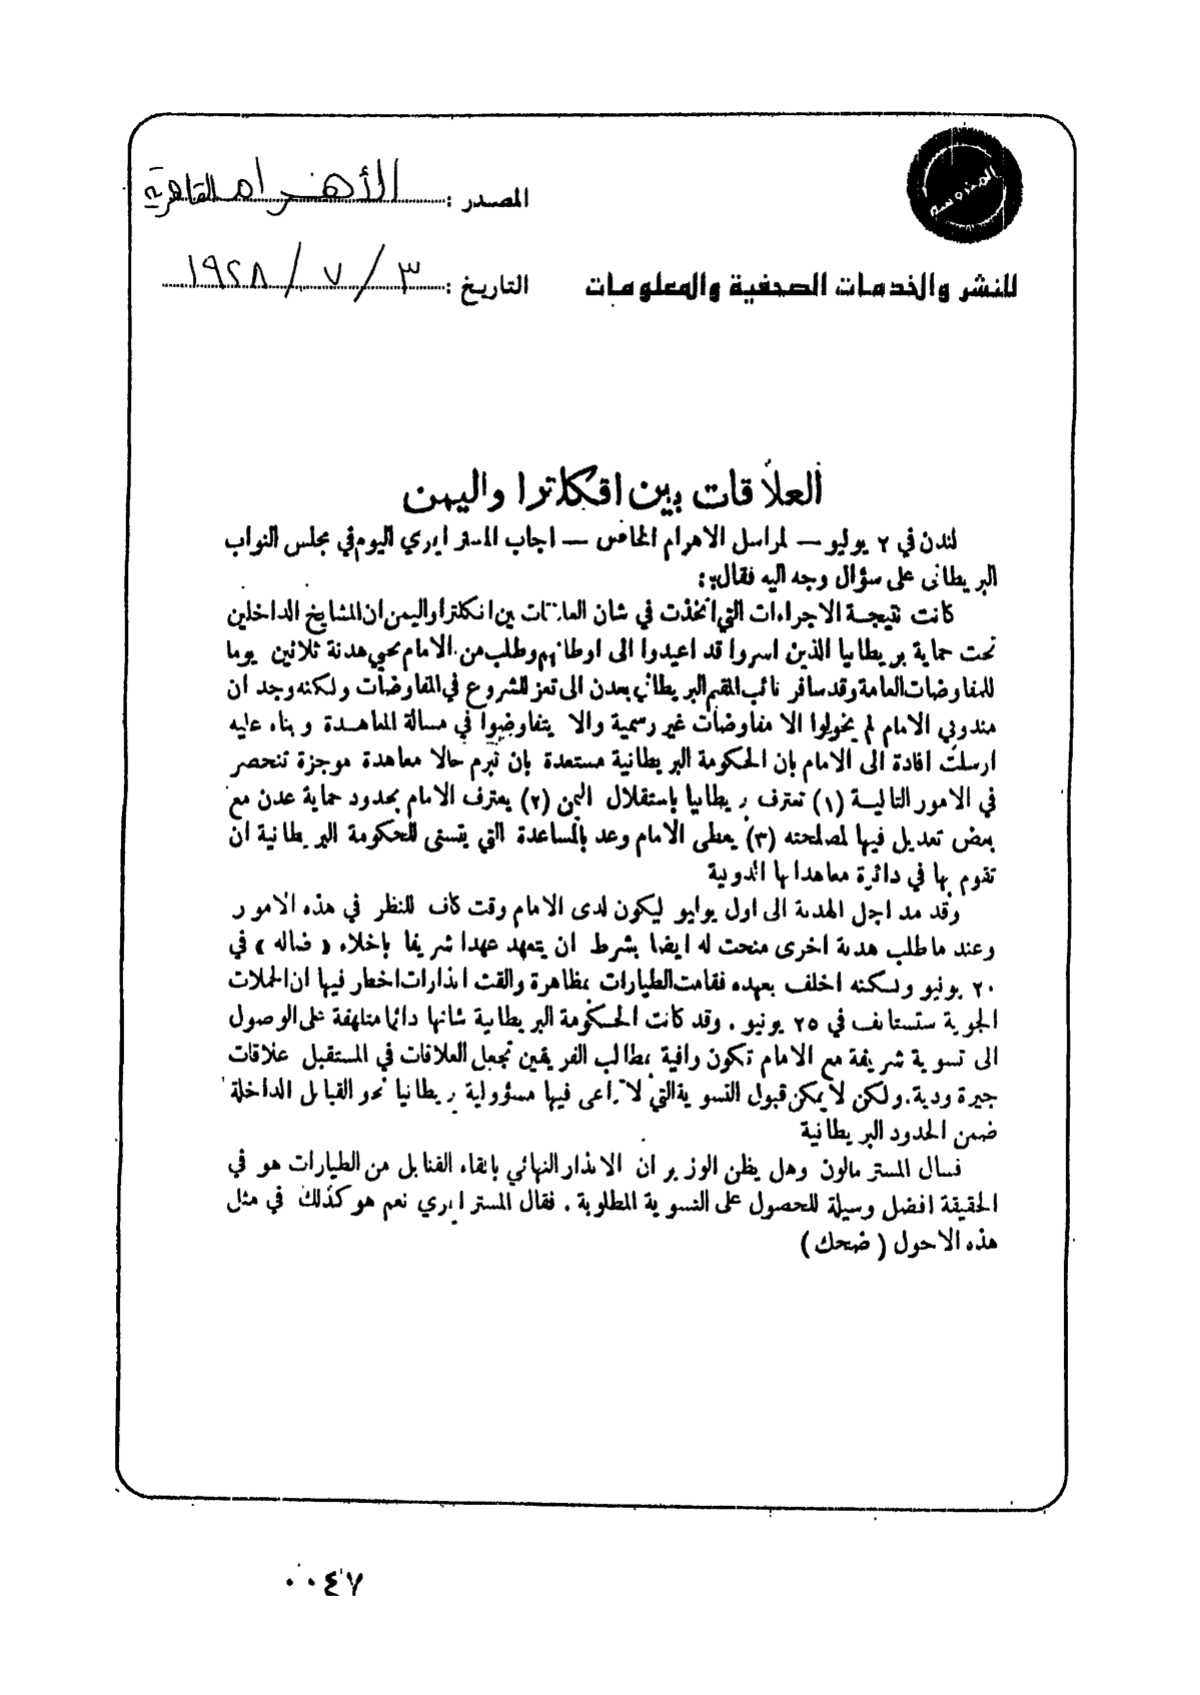 المحروسه
للنشر والخدمات الصحفية والمعلومات
المصدر : الأهرام القاهرية
التاريخ : ٣ / ٧ / ١٩٢٨
العلاقات بين انكلترا واليمن
لندن في ٢ يوليو — لمراسل الاهرام الخاص — اجاب المستر ايمري اليوم في مجلس النواب
البريطانى على سؤال وجه اليه فقال :
كانت نتيجة الاجراءات التي اتخذت في شان العلاقات بين انكلترا واليمن ان المشايخ الداخلين
تحت حماية بريطانيا الذين اسروا قد اعيدوا الى اوطانهم وطلب من الامام يحيي هدنة ثلاثين يوما
للمفاوضات العامة وقد سافر نائب المقيم البريطاني بعدن الى تعز للشروع في المفاوضات ولكنه وجد ان
مندوبي الامام لم يخولوا الا مفاوضات غير رسمية والا يتفاوضوا في مسالة المعاهدة وبناء عليه
ارسلت افادة الى الامام بان الحكومة البريطانية مستعدة بان تبرم حالا معاهدة موجزة تنحصر
في الامور التالية (١) تعترف بريطانيا باستقلال اليمن (٢) يعترف الامام بحدود حماية عدن مع
بعض تعديل فيها لمصلحته (٣) يعطى الامام وعد بالمساعدة التي يتسنى للحكومة البريطانية ان
تقوم بها في دائرة معاهداتها الدولية
وقد مد اجل الهدنة الى اول يوليو ليكون لدى الامام وقت كاف للنظر في هذه الامور
وعند ما طلب هدنة اخرى منحت له ايضا بشرط ان يتعهد عهدا شريفا باخلاء « ضاله » في
٢٠ يونيو ولكنه اخلف بعهده فقامت الطيارات بمظاهرة والقت انذارات اخطر فيها ان الحملات
الجوية ستستانف في ٢٥ يونيو . وقد كانت الحكومة البريطانية شانها دائما متلهفة على الوصول
الى تسوية شريفة مع الامام تكون وافية بمطالب الفريقين تجعل العلاقات في المستقبل علاقات
جيرة ودية . ولكن لا يمكن قبول التسوية التي لا تراعى فيها مسؤولية بريطانيا نحو القبائل الداخلة
ضمن الحدود البريطانية
فسال المستر مالون وهل يظن الوزير ان الانذار النهائي بالقاء القنابل من الطيارات هو في
الحقيقة افضل وسيلة للحصول على التسوية المطلوبة . فقال المستر ايمري نعم هو كذلك في مثل
هذه الاحول ( ضحك )
٠٠٤٧